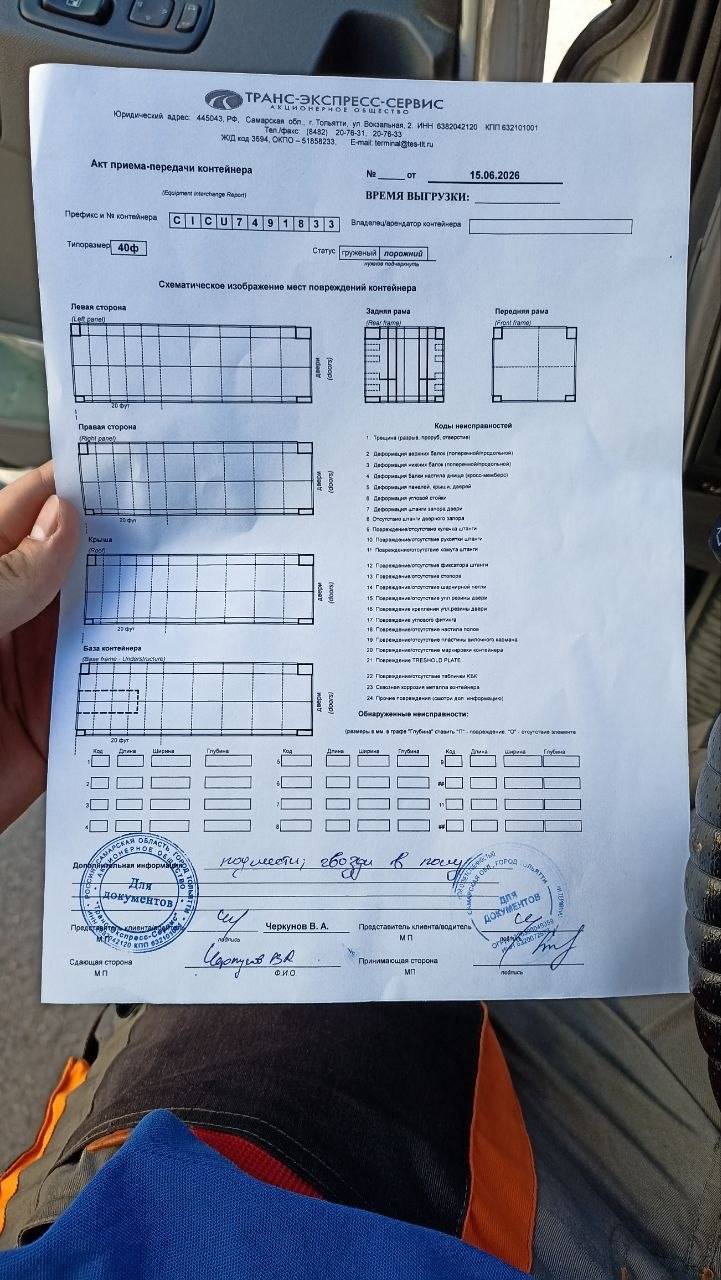 ТРАНС-ЭКСПРЕСС-СЕРВИС
АКЦИОНЕРНОЕ ОБЩЕСТВО
Юридический адрес: 445043, РФ, Самарская обл., г. Тольятти, ул. Вокзальная, 2. ИНН 6382042120 КПП 632101001
Тел./факс: (8482) 20-76-31, 20-76-33
Ж/Д код 3694, ОКПО – 51858233. E-mail: terminal@tes-tlt.ru
Акт приема-передачи контейнера
№ от 15.06.2026
(Equipment Interchange Report)
ВРЕМЯ ВЫГРУЗКИ:
Префикс и № контейнера CICU7491833 Владелец/арендатор контейнера
Типоразмер 40ф Статус груженый порожний
нужное подчеркнуть
Схематическое изображение мест повреждений контейнера
Левая сторона Задняя рама Передняя рама
(Left panel) (Rear frame) (Front frame)
двери (doors)
20 фут
Правая сторона
(Right panel)
двери (doors)
20 фут
Крыша
(Roof)
двери (doors)
20 фут
База контейнера
(Base frame - Understructure)
двери (doors)
20 фут
Коды неисправностей
1 Трещина (разрыв, проруб, отверстие)
2 Деформация верхних балок (поперечной/продольной)
3 Деформация нижних балок (поперечной/продольной)
4 Деформация балки настила днища (кросс-мемберс)
5 Деформация панелей, крыши, дверей
6 Деформация угловой стойки
7 Деформация штанги запора двери
8 Отсутствие штанги дверного запора
9 Повреждение/отсутствие кулачка штанги
10 Повреждение/отсутствие рукоятки штанги
11 Повреждение/отсутствие хомута штанги
12 Повреждение/отсутствие фиксатора штанги
13 Повреждение/отсутствие стопора
14 Повреждение/отсутствие шарнирной петли
15 Повреждение/отсутствие упл.резины двери
16 Повреждение крепления упл.резины двери
17 Повреждение углового фитинга
18 Повреждение/отсутствие настила полов
19 Повреждение/отсутствие пластины вилочного кармана
20 Повреждение/отсутствие маркировки контейнера
21 Повреждение TRESHOLD PLATE
22 Повреждение/отсутствие таблички КБК
23 Сквозная коррозия металла контейнера
24 Прочие повреждения (смотри доп. информацию)
Обнаруженные неисправности:
(размеры в мм. в графе "Глубина" ставить "П" - повреждение, "О" - отсутствие элемента
Код Длина Ширина Глубина Код Длина Ширина Глубина Код Длина ширина Глубина
1 5 9
2 6 ##
3 7 11
4 8 ##
Дополнительная информация подмести, гвозди в полу
Представитель клиента/водитель Черкунов В. А. Представитель клиента/водитель
М П подпись М П подпись
Сдающая сторона Черкунов ВА Принимающая сторона
М П Ф.И.О МП подпись
РОССИЯ САМАРСКАЯ ОБЛАСТЬ ГОРОД ТОЛЬЯТТИ
АКЦИОНЕРНОЕ ОБЩЕСТВО
Для документов
"Транс-Экспресс-Сервис"
САМАРСКАЯ ОБЛ., ГОРОД ТОЛЬЯТТИ
ДЛЯ ДОКУМЕНТОВ